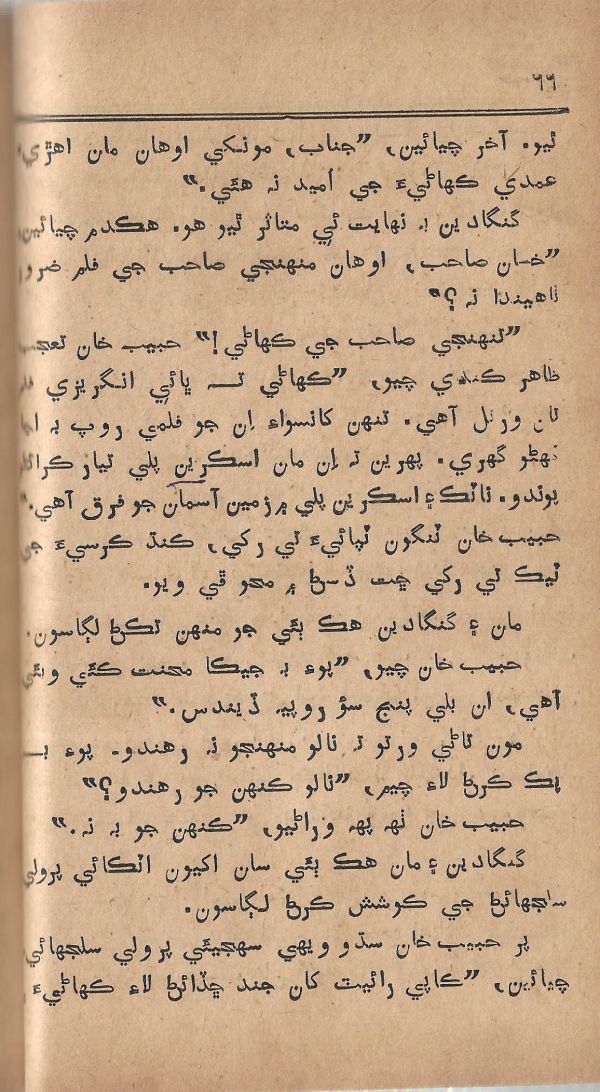 ٦٦
ٿيو. آخر چيائين, ”جناب, مونکي اوهان مان اهڙي
عمدي ڪهاڻيءَ جي اُميد نہ هئي.“
گنگادين بہ نهايت ئي متاثر ٿيو هو. هڪدم چيائين,
”خان صاحب, اوهان منهنجي صاحب جي فلم ضرور
ٺاهيندا نہ ؟“
”تنهنجي صاحب جي ڪهاڻي!“ حبيب خان تعجب
ظاهر ڪندي چيو, ”ڪهاڻي تہ ڀائي انگريزي فلم
تان ورتل آهي. تنهن کانسواءِ اِن جو فلمي روپ بہ
گهري. پهرين تہ اِن مان اسڪرين پلي تيار ڪرائڻو
پوندو. ناٽڪ ۽ اسڪرين پلي ۾ زمين آسمان جو فرق آهي.“
حبيب خان ٽنگون ٽپائيءَ تي رکي, ڪنڌ ڪرسيءَ جي
ٽيڪ تي رکي ڇت ڏسڻ ۾ محو ٿي ويو.
مان ۽ گنگادين هڪ ٻئي جو منهن تڪڻ لڳاسون.
حبيب خان چيو, ”پوءِ بہ جيڪا محنت ڪئي وئي
آهي, ان بلي پنج سؤ روپيہ ڏيندس.“
مون تاڻي ورتو تہ نالو منهنجو نہ رهندو. پوءِ بہ
پڪ ڪرڻ لاءِ چيم, ”نالو ڪنهن جو رهندو؟“
حبيب خان ٺهہ پهہ وراڻيو, ”ڪنهن جو بہ نہ.“
گنگادين ۽ مان هڪ ٻئي سان اکيون اٽڪائي پرولي
سلجهائڻ جي ڪوشش ڪرڻ لڳاسون.
پر حبيب خان سڌو ويهي سهجيئي پرولي سلجهائي,
چيائين, ”ڪاپي رائيٽ کان جند ڇڏائڻ لاءِ ڪهاڻيءَ